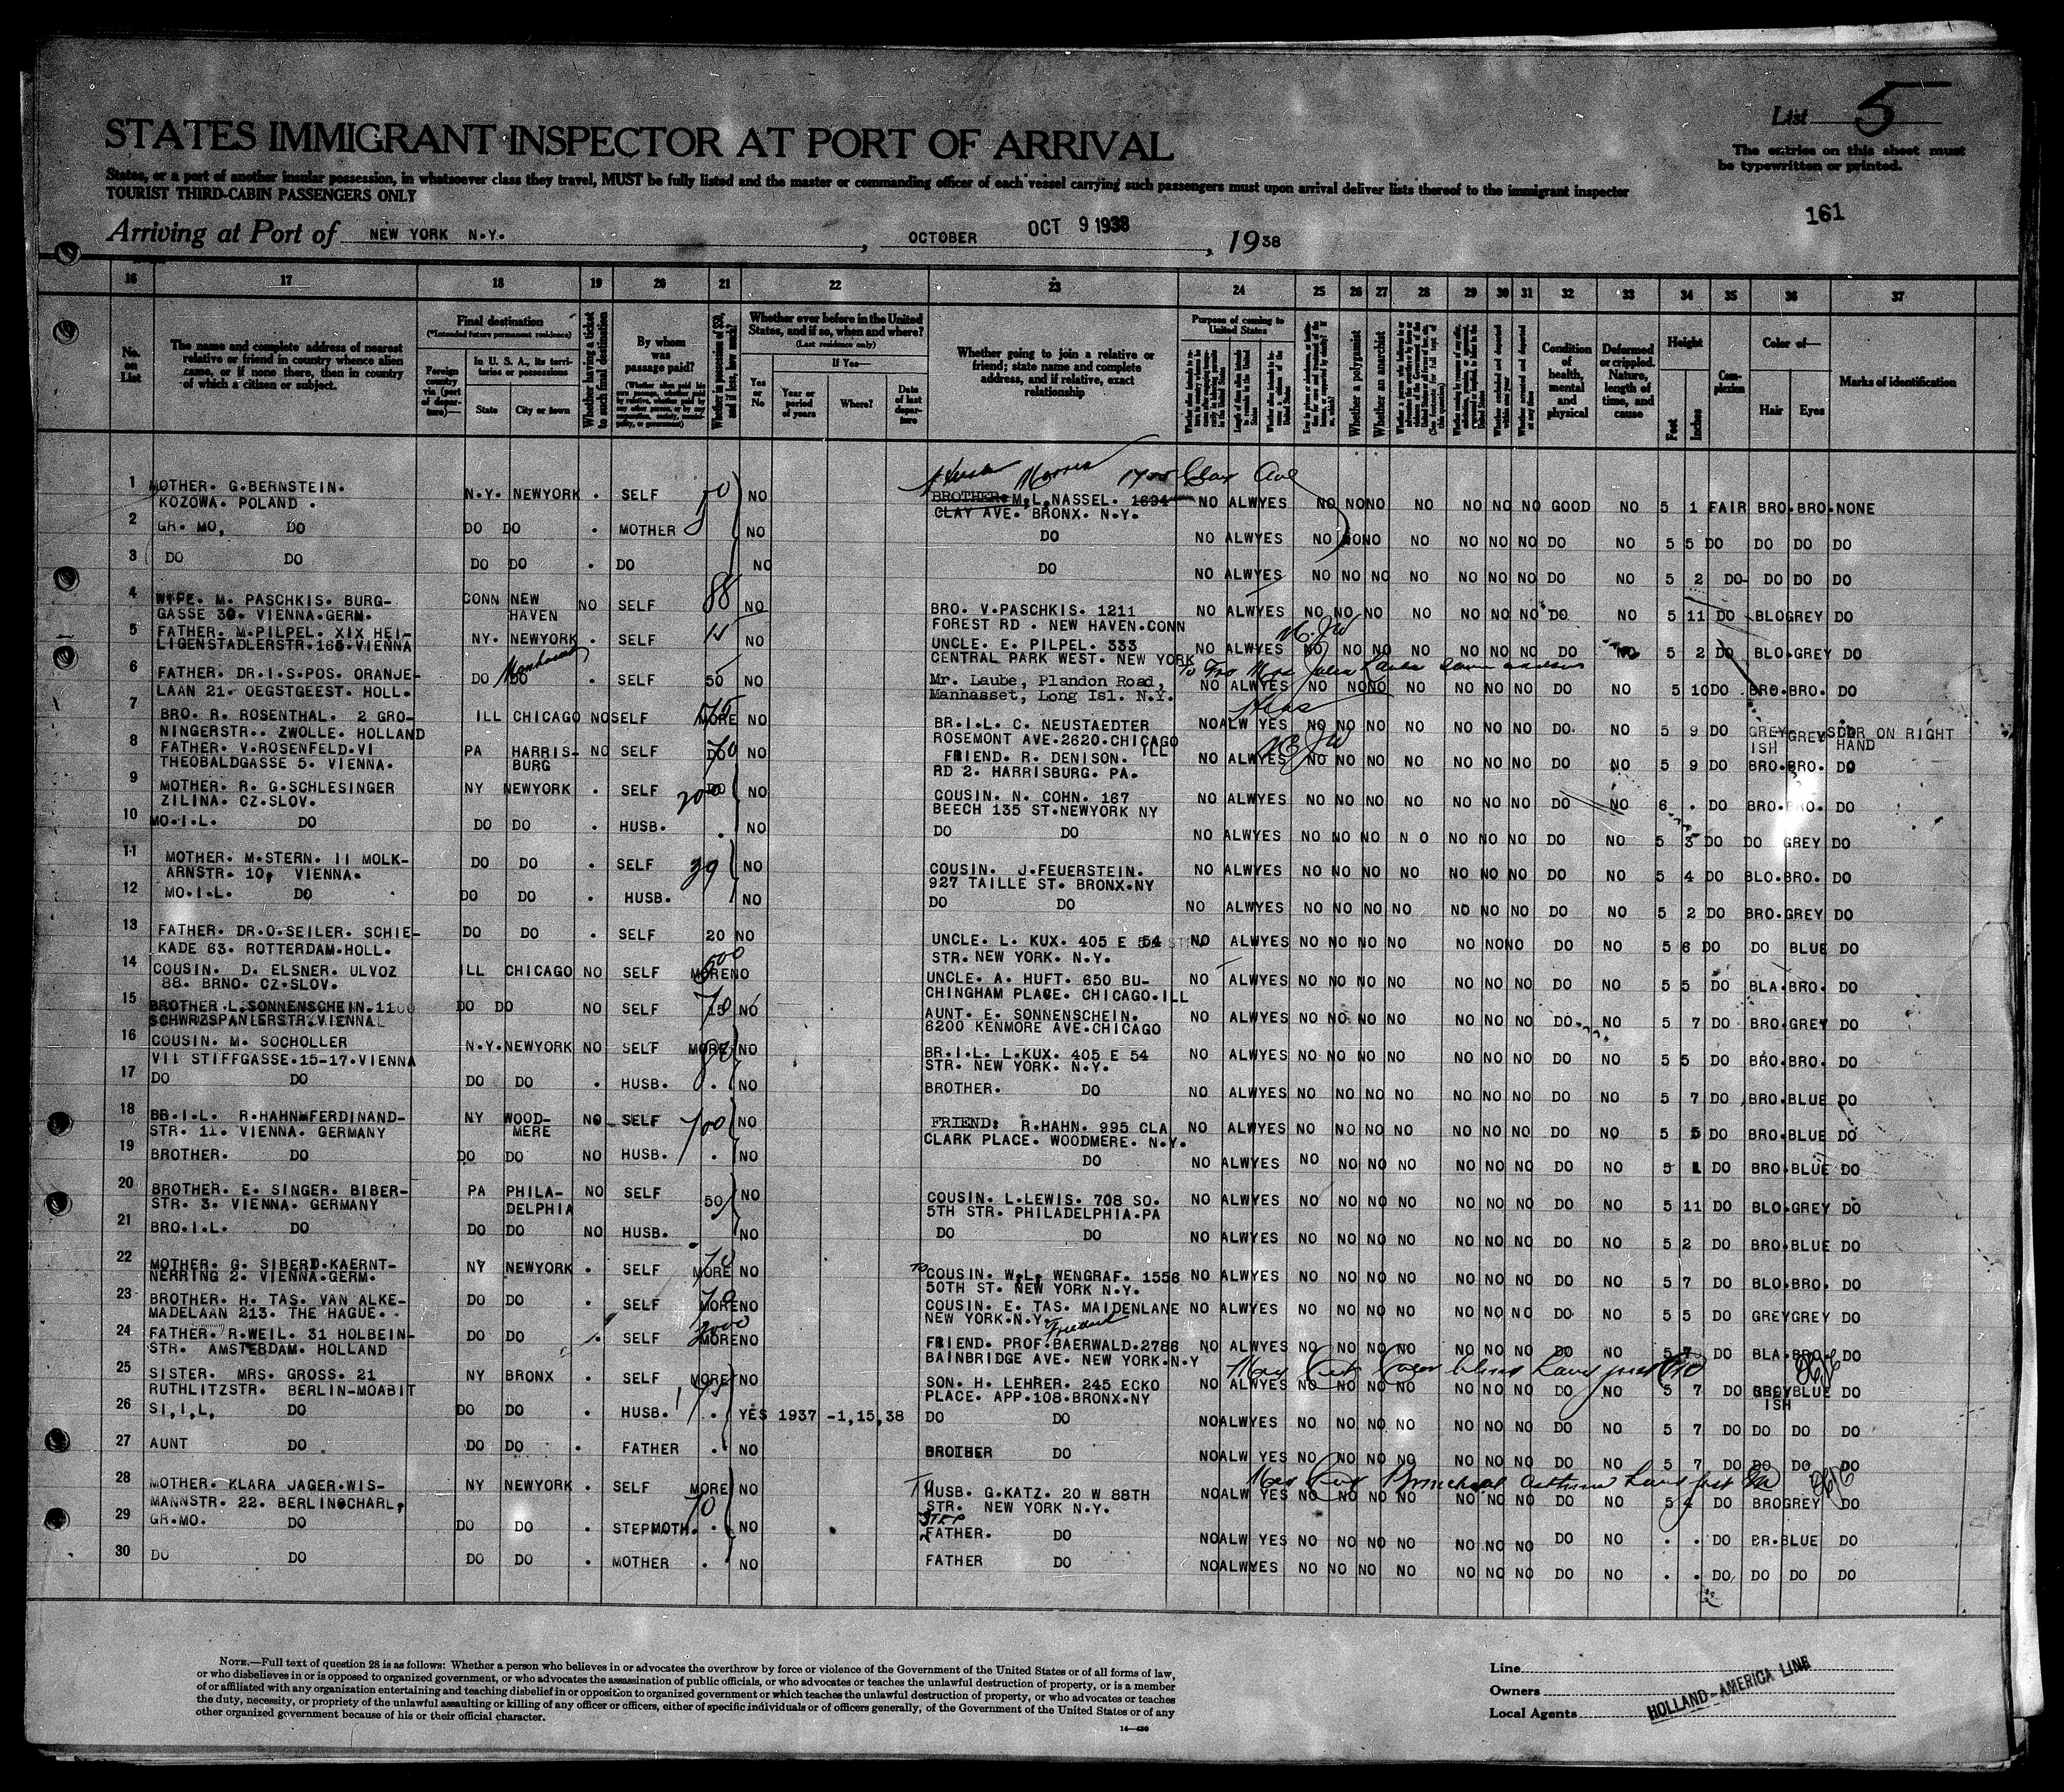 List 5
STATES IMMIGRANT INSPECTOR AT PORT OF ARRIVAL
The entries on this sheet must
be typewritten or printed.
States, or a part of another insular possession, in whatsoever class they travel, MUST be fully listed and the master or commanding officer of each vessel carrying such passengers must upon arrival deliver lists thereof to the immigrant inspector
TOURIST THIRD-CABIN PASSENGERS ONLY
161
Arriving at Port of NEW YORK N.Y. , OCTOBER OCT 9 1938 , 1938
16 17 18 19 20 21 22 23 24 25 26 27 28 29 30 31 32 33 34 35 36 37
No. on List
The name and complete address of nearest
relative or friend in country whence alien
came, or if none there, then in country
of which a citizen or subject.
Final destination
(*Intended future permanent residence)
Foreign country via (port of departure)—
In U. S. A., its territories or possessions
State City or town
Whether having a ticket to such final destination
By whom was passage paid?
Whether in possession of $50, and if less, how much?
Whether ever before in the United States, and if so, when and where?
(Last residence only)
Yes or No
If Yes—
Year or period of years Where? Date of last departure
Whether going to join a relative or
friend; state name and complete
address, and if relative, exact
relationship
Purpose of coming to United States
Whether a polygamist
Whether an anarchist
Condition of health, mental and physical
Deformed or crippled. Nature, length of time, and cause
Height
Feet Inches
Complexion
Color of—
Hair Eyes
Marks of identification
1 MOTHER. G.BERNSTEIN. N.Y. NEWYORK . SELF 50 NO BROTHER. M.L.NASSEL. 1694 NO ALWYES NO NONO NO NO NO NO GOOD NO 5 1 FAIR BRO.BRO.NONE
KOZOWA. POLAND . CLAY AVE. BRONX. N.Y.
2 GR. MO, DO DO DO . MOTHER NO DO NO ALWYES NO NONO NO NO NO NO DO NO 5 5 DO DO DO DO
3 DO DO DO DO . DO NO DO NO ALWYES NO NO NO NO NO NO NO DO NO 5 2 DO DO DO DO
4 WIFE. M. PASCHKIS. BURG- CONN NEW NO SELF 88 NO BRO. V.PASCHKIS. 1211 NO ALWYES NO NO NO NO NO NO NO DO NO 5 11 DO BLOGREY DO
GASSE 30. VIENNA.GERM. HAVEN FOREST RD . NEW HAVEN.CONN
5 FATHER. M.PILPEL. XIX HEI- NY. NEWYORK . SELF NO UNCLE. E. PILPEL. 333 NO ALWYES NO NO NO NO NO NO NO DO NO 5 2 DO BLO.GREY DO
LIGENSTADLERSTR.165.VIENNA CENTRAL PARK WEST. NEW YORK
6 FATHER. DR.I.S.POS. ORANJE- DO DO . SELF 50 NO Mr. Laube, Plandon Road, NO ALWYES NO NONO NO NO NO NO DO NO 5 10DO BRO.BRO. DO
LAAN 21. OEGSTGEEST. HOLL. Manhasset, Long Isl. N.Y.
7 BRO. R. ROSENTHAL. 2 GRO- ILL CHICAGO NO SELF MORE NO BR.I.L. C. NEUSTAEDTER NOALW YES NO NO NO NO NO NO NO DO. NO 5 9 DO GREY- GREY SCAR ON RIGHT
NINGERSTR.. ZWOLLE. HOLLAND ROSEMONT AVE.2620.CHICAGO ISH HAND
8 FATHER. V.ROSENFELD.VI PA HARRIS- NO SELF NO FRIEND. R. DENISON. ILL NO ALWYES NO NO NO NO NO NO NO DO NO 5 9 DO BRO.BRO. DO
THEOBALDGASSE 5. VIENNA. BURG RD 2. HARRISBURG. PA.
9 MOTHER. R. G.SCHLESINGER NY NEWYORK . SELF 200 NO COUSIN. N. COHN. 167 NO ALWYES NO NO NO NO NO NO NO DO NO 6 . DO BRO.BRO. DO
ZILINA. CZ.SLOV. BEECH 135 ST.NEWYORK NY
10 MO.I.L. DO DO DO . HUSB. . NO DO DO NO ALWYES NO NO NO N O NO NO NO DO NO 5 3 DO DO GREY DO
11 MOTHER. M.STERN. II MOLK- DO DO . SELF 39 NO COUSIN. J.FEUERSTEIN. NO ALWYES NO NO NO NO NO NO NO DO NO 5 4 DO BLO.BRO. DO
ARNSTR. 10, VIENNA. 927 TAILLE ST. BRONX.NY
12 MO.I.L. DO DO DO . HUSB. NO DO DO NO ALWYES NO NO NO NO NO NO NO DO NO 5 2 DO BRO.GREY DO
13 FATHER. DR.O.SEILER. SCHIE- DO DO . SELF 20 NO UNCLE. L. KUX. 405 E 54 NO ALWYES NO NO NO NO NO NONO DO NO 5 6 DO DO BLUE DO
KADE 63. ROTTERDAM.HOLL. STR. NEW YORK. N.Y.
14 COUSIN. D. ELSNER. ULVOZ ILL CHICAGO NO SELF MORENO UNCLE. A. HUFT. 650 BU- NO ALWYES NO NO NO NO NO NO NO DO NO 5 5 DO BLA.BRO. DO
88. BRNO. CZ.SLOV. CHINGHAM PLACE. CHICAGO.ILL
15 BROTHER.L.SONNENSCHEIN.1100 DO DO NO SELF NO AUNT. E. SONNENSCHEIN. NO ALWYES NO NO NO NO NO NO NO DO NO 5 7 DO BRO.GREY DO
SCHWRZSPANIERSTR.VIENNA 6200 KENMORE AVE.CHICAGO
16 COUSIN. M. SOCHOLLER N.Y.NEWYORK NO SELF MORE NO BR.I.L. L.KUX. 405 E 54 NO ALWYES NO NO NO NO NO NO NO DO NO 5 5 DO BRO.BRO. DO
VII STIFFGASSE.15-17.VIENNA STR. NEW YORK. N.Y.
17 DO DO DO DO . HUSB. . NO BROTHER. DO NO ALWYES NO NO NO NO NO NO NO DO NO 5 7 DO BRO.BLUE DO
18 BR.I.L. R.HAHN.FERDINAND- NY WOOD- NO SELF 100 NO FRIEND: R.HAHN. 995 CLA NO ALWYES NO NO NO NO NO NO NO DO NO 5 5 DO BRO.BLUE DO
STR. 11. VIENNA. GERMANY MERE CLARK PLACE. WOODMERE. N.Y.
19 BROTHER. DO DO DO NO HUSB. . NO DO NO ALWYES NO NO NO NO NO NO NO DO NO 5 1 DO BRO.BLUE DO
20 BROTHER. E. SINGER. BIBER- PA PHILA- NO SELF 50 NO COUSIN. L.LEWIS. 708 SO. NO ALWYES NO NO NO NO NO NO NO DO NO 5 11 DO BLO.GREY DO
STR. 3. VIENNA. GERMANY DELPHIA 5TH STR. PHILADELPHIA.PA
21 BRO.I.L. DO DO DO NO HUSB. NO DO DO NO ALWYES NO NO NO NO NO NO NO DO NO 5 2 DO BRO.BLUE DO
22 MOTHER. G. SIBERD.KAERNT- NY NEWYORK . SELF MORE NO COUSIN. W.L. WENGRAF. 1556 NO ALWYES NO NO NO NO NO NO NO DO NO 5 7 DO BLO.BRO. DO
NERRING 2. VIENNA.GERM. 50TH ST. NEW YORK N.Y.
23 BROTHER. H. TAS. VAN ALKE- DO DO . SELF MORENO COUSIN. E. TAS. MAIDENLANE NO ALWYES NO NO NO NO NO NO NO DO NO 5 5 DO GREYGREY DO
MADELAAN 213. THE HAGUE. NEW YORK.N.Y.
24 FATHER. R.WEIL. 31 HOLBEIN- DO DO . SELF MORENO FRIEND. PROF.BAERWALD.2786 NO ALWYES NO NO NO NO NO NO NO DO NO 5 7 DO BLA.BRO. DO
STR. AMSTERDAM. HOLLAND BAINBRIDGE AVE. NEW YORK.N.Y
25 SISTER. MRS. GROSS. 21 NY BRONX . SELF MORE NO SON. H. LEHRER. 245 ECKO NO ALWYES NO NO NO NO NO NO NO DO NO 5 7 DO GREYBLUE DO
RUTHLITZSTR. BERLIN-MOABIT PLACE. APP.108.BRONX.NY ISH
26 SI,I,L, DO DO DO . HUSB. . YES 1937 -1,15,38 DO DO NOALWYES NO NO NO NO NO NO NO DO NO 5 7 DO DO DO DO
27 AUNT DO DO DO . FATHER . NO BROTHER DO NOALW YES NO NO NO NO NO NO NO DO NO 5 7 DO DO DO DO
28 MOTHER. KLARA JAGER.WIS- NY NEWYORK . SELF MORE NO HUSB. G.KATZ. 20 W 88TH NOALW YES NO NO NO NO NO NO NO DO NO 5 4 DO BROGREY DO
MANNSTR. 22. BERLIN@CHARL, STR. NEW YORK N.Y.
29 GR.MO. DO DO DO . STEPMOTH. . NO STEP FATHER. DO NOALW YES NO NO NO NO NO NO NO DO NO . . DO BR.BLUE DO
30 DO DO DO DO . MOTHER . NO FATHER DO NOALWYES NO NO NO NO NO NO NO DO NO . . DO DO DO DO
NOTE.—Full text of question 28 is as follows: Whether a person who believes in or advocates the overthrow by force or violence of the Government of the United States or of all forms of law,
or who disbelieves in or is opposed to organized government, or who advocates the assassination of public officials, or who advocates or teaches the unlawful destruction of property, or is a member
of or affiliated with any organization entertaining and teaching disbelief in or opposition to organized government or which teaches the unlawful destruction of property, or who advocates or teaches
the duty, necessity, or propriety of the unlawful assaulting or killing of any officer or officers, either of specific individuals or of officers generally, of the Government of the United States or of any
other organized government because of his or their official character.
Line
Owners
Local Agents
HOLLAND-AMERICA LINE